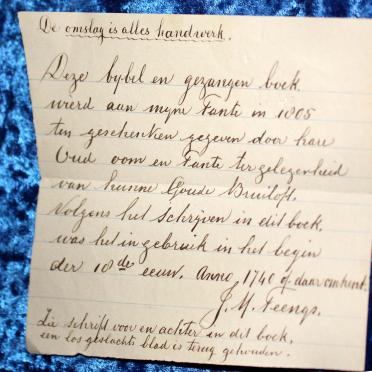 De omslag is alles handwerk.
Deze bybel en gezangen boek
werd aan myne Tante in 1805
ten geschenken gegeven door hare
Oud oom en Tante ter gelegenheid
van hunne Goude Bruiloft.
Volgens het schrijven in dit boek,
was het in gebruik in het begin
der 18de eeuw. Anno, 1740 of daaromtrent.
J. M. Teengs.
Zie schrift voor en achter in dit boek,
een los geslachts blad is terug gehouden.